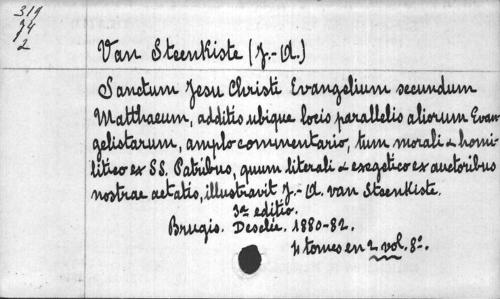 319
74
2
Van Steenkiste (J.-A.)
Sanctum Jesu Christi Evangelium secundum
Matthaeum, additis ubique locis parallelis aliorum Evan-
gelistarum, amplo commentario, tum morali & homi-
litico ex SS. Patribus, quum literali & exegetico ex auctoribus
nostrae aetatis, illustravit J.-A. van Steenkiste.
3a editio.
Brugis. Desclée. 1880-82.
4 tomes en 2 vol. 8°.